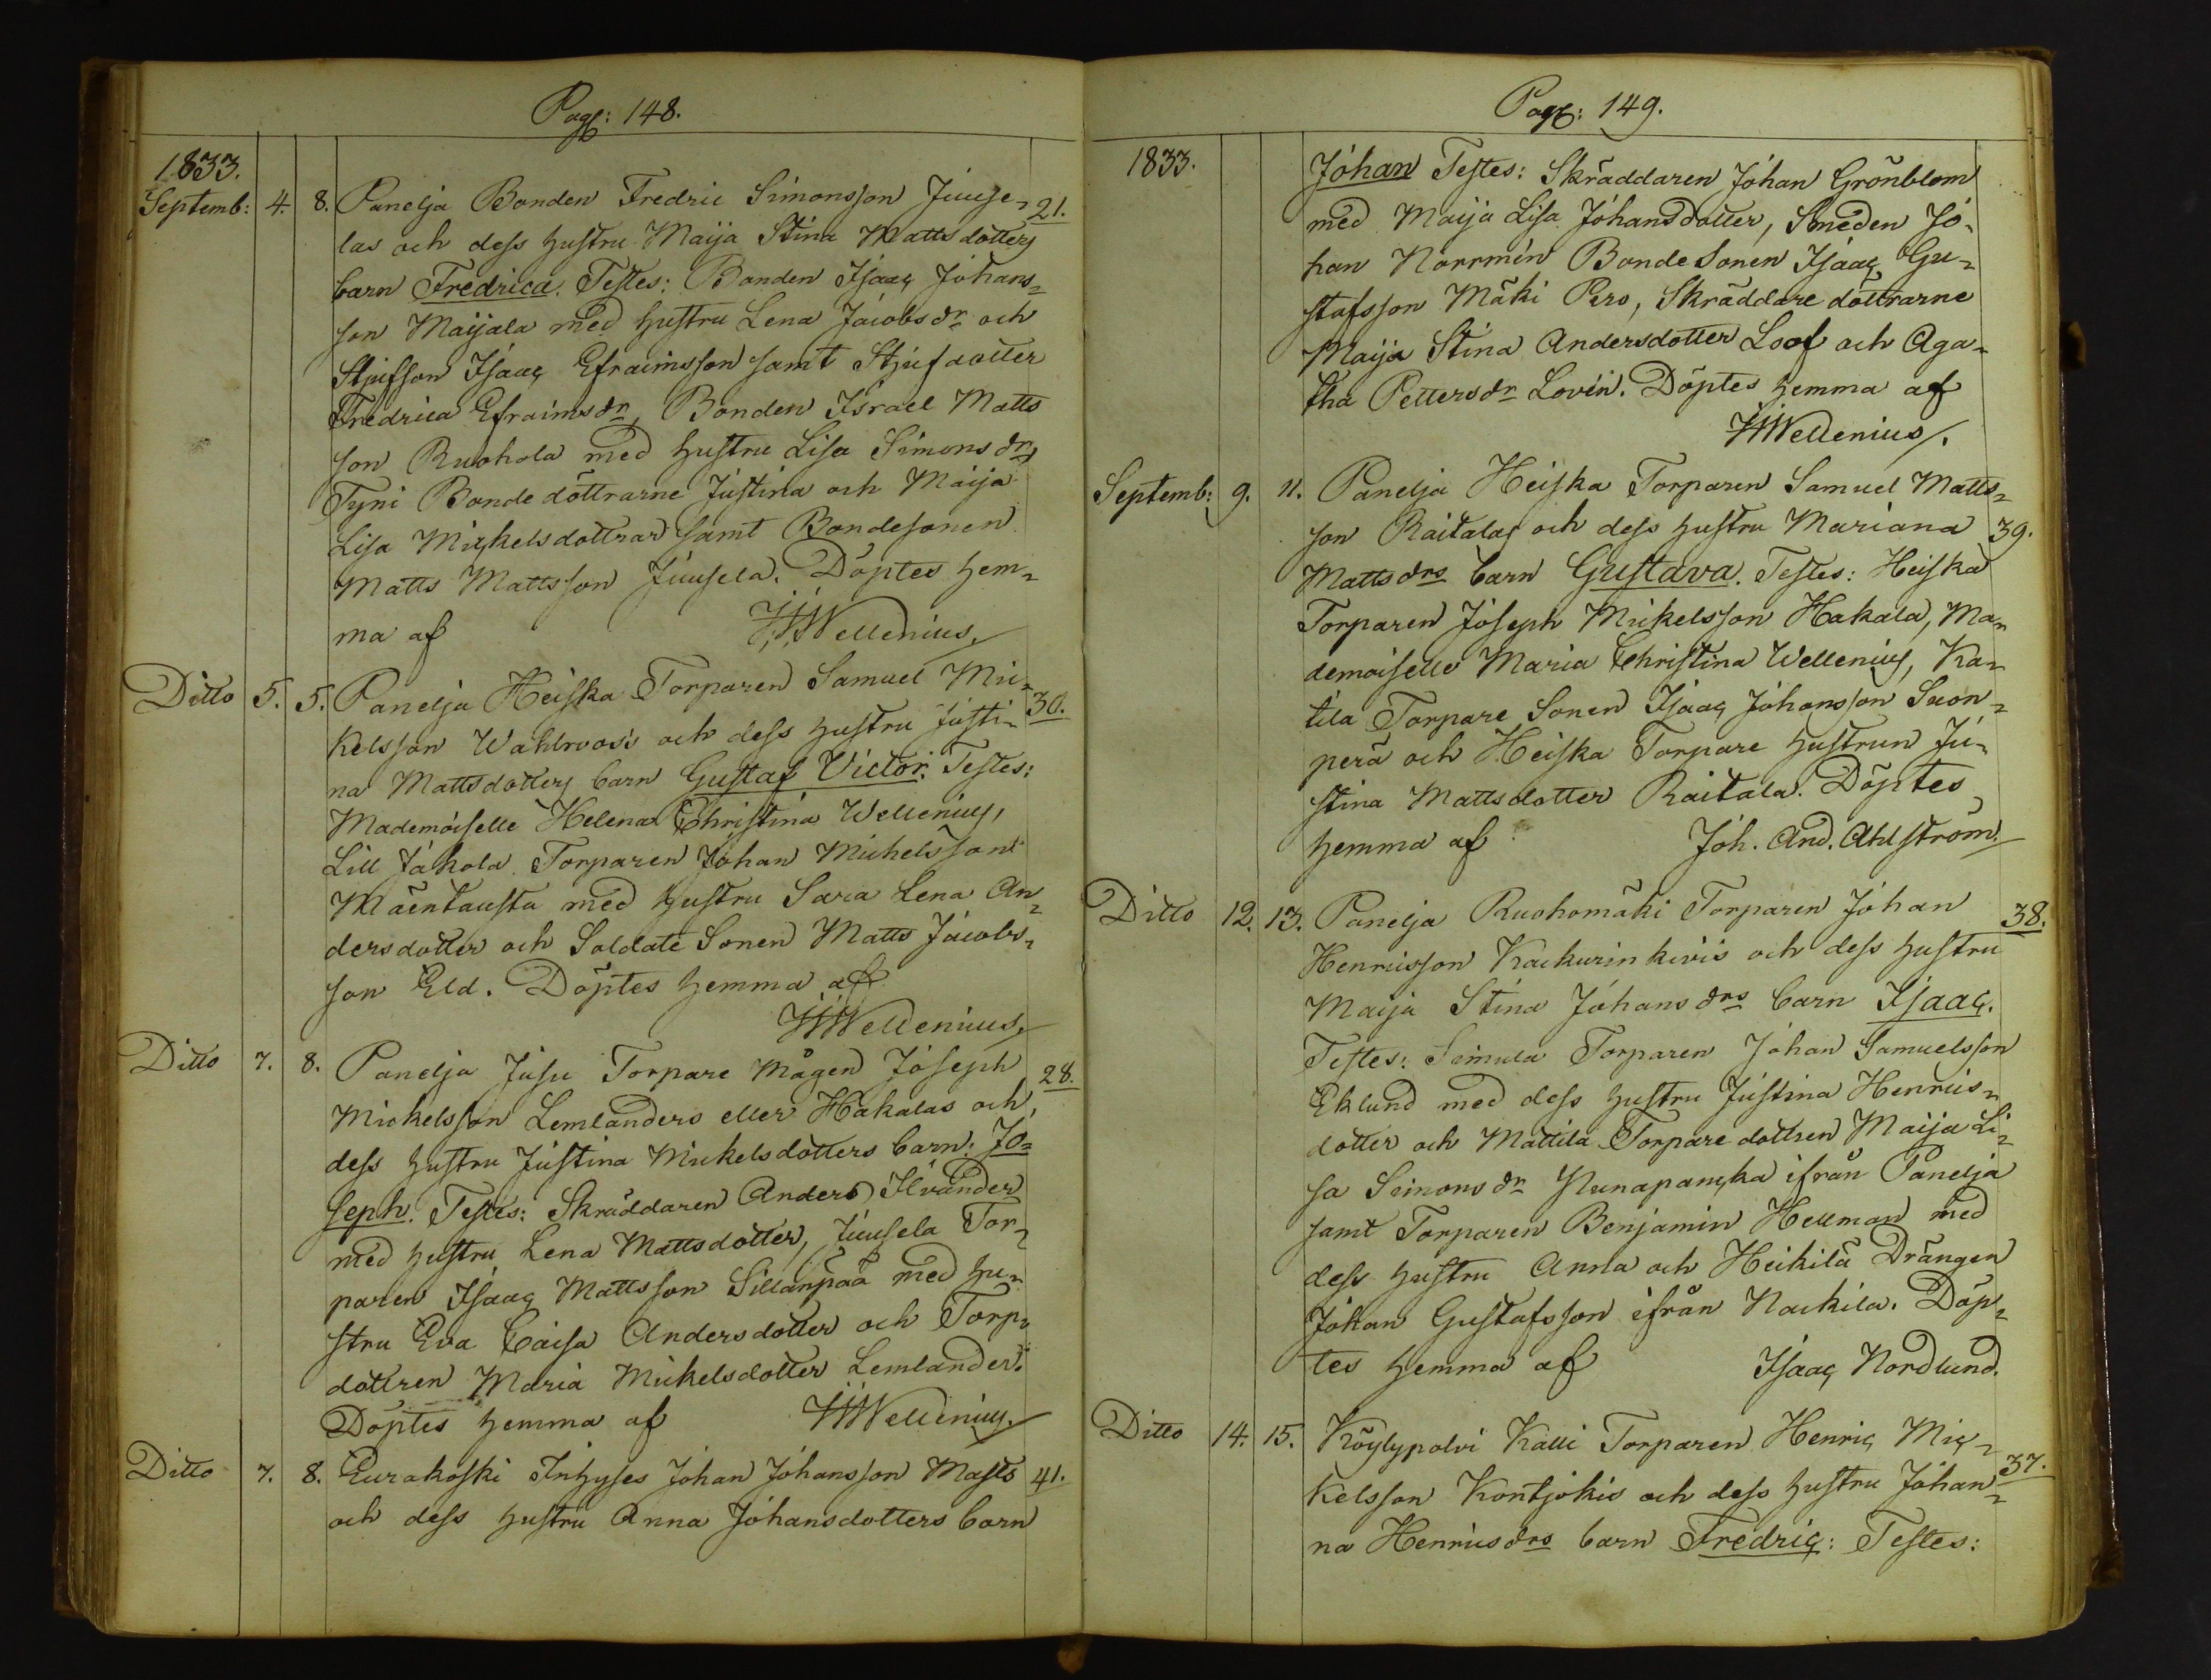 Pag: 148.
1833.
Septemb: 4. 8. Panelja Bonden Fredric Simonsson Juuse- 21.
las och dess hustru Maija Stina Mattsdotters
barn Fredrica. Testes: Bonden Isaac Johans-
son Maijala med hustru Lena Jacobsdr och
Stjufson Isaac Efraimsson samt Stjufdotter
Fredrica Efraimsdr, Bonden Israel Matts
son Ruohola med hustru Lisa Simonsdr,
Tyni Bondedöttrarne Justina och Maija
Lisa Mickelsdöttrar samt Bondesonen
Matts Mattsson Juusela. Döptes hem-
ma af Wellenius.
Ditto 5. 5. Panelja Heiska Torparen Samuel Mic- 30.
kelsson Wahlroos's och dess hustru Justi-
na Mattsdotters barn Gustaf Victor. Testes:
Mademoiselle Helena Christina Wellenius,
Lill Jakola Torparen Johan Michelsson
Mäentausta med hustru Sara Lena An-
dersdotter och Soldate Sonen Matts Jacobs-
son Eld. Döptes hemma af
Wellenius.
Ditto 7. 8. Panelja Jusu Torpare mågen Joseph 28.
Mickelsson Lemlanders eller Hakalas och
dess hustru Justina Mickelsdotters barn: Jo-
seph. Testes: Skräddaren Anders Ilvander
med hustru Lena Mattsdotter, Juusela Tor-
paren Isaac Mattsson Sillanpää med hu-
stru Eva Caisa Andersdotter och Torp-
dottren Maria Mickelsdotter Lemlander.
Döptes hemma af Wellenius.
Ditto 7. 8. Eurakoski Inhyses Johan Johansson Masts 41.
och dess hustru Anna Johansdotters barn
Pag: 149.
1833. Johan Testes: Skräddaren Johan Grönblom
med Maija Lisa Johansdotter, Smeden Jo-
han Norrmén Bonde Sonen Isaac Gu-
stafsson Mäki Pero, Skräddare döttrarne
Maija Stina Andersdotter Loof och Aga-
tha Pettersdr Lovén. Döptes hemma af
Wellenius.
Septemb: 9. 11. Panelja Heiska Torparen Samuel Matts-
son Raitalas och dess hustru Mariana 39.
Mattsdrs barn Gustava. Testes: Heiska
Torparen Joseph Mickelsson Hakala, Ma-
demoiselle Maria Christina Wellenius, Ka-
tila Torpare Sonen Isaac Johansson Suon-
perä och Heiska Torpare hustrun Ju-
stina Mattsdotter Raitala. Döptes
hemma af Joh. And. Ahlström.
Ditto 12. 13. Panelja Ruohomäki Torparen Johan 38.
Henricsson Kackurinkivis och dess hustru
Maija Stina Johansdrs barn Isaac.
Testes: Simula Torparen Johan Samuelsson
Eklund med dess hustru Justina Henrics-
dotter och Mattila Torpare dottren Maija Li-
sa Simonsdr Nunapancka ifrån Panelja
samt Torparen Benjamin Hellman med
dess hustru Anna och Heikilä Drängen
Johan Gustafsson ifrån Nackila. Döp-
tes hemma af Isaac Nordlund.
Ditto 14. 15. Köylypolvi Kalli Torparen Henric Mic-
kelsson Kontjokis och dess hustru Johan- 37.
na Henricsdrs barn Fredric: Testes: